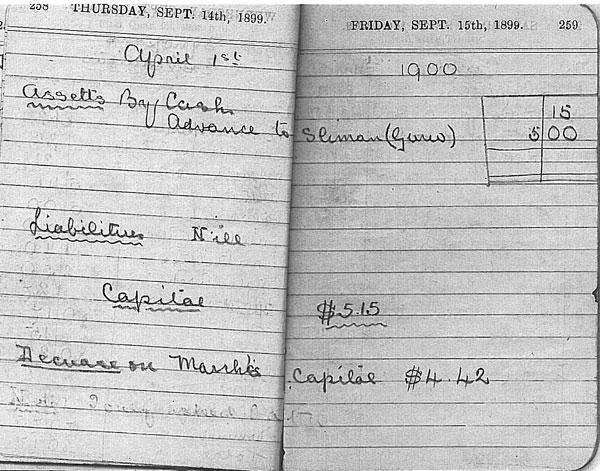 258 THURSDAY, SEPT. 14th, 1899.
FRIDAY, SEPT. 15th, 1899. 259
April 1st 1900
Assetts By Cash 15
Advance to Sliman (Guru) 5 00
Liabilities Nill
Capital $5.15
Decrease on March's Capital $4.42